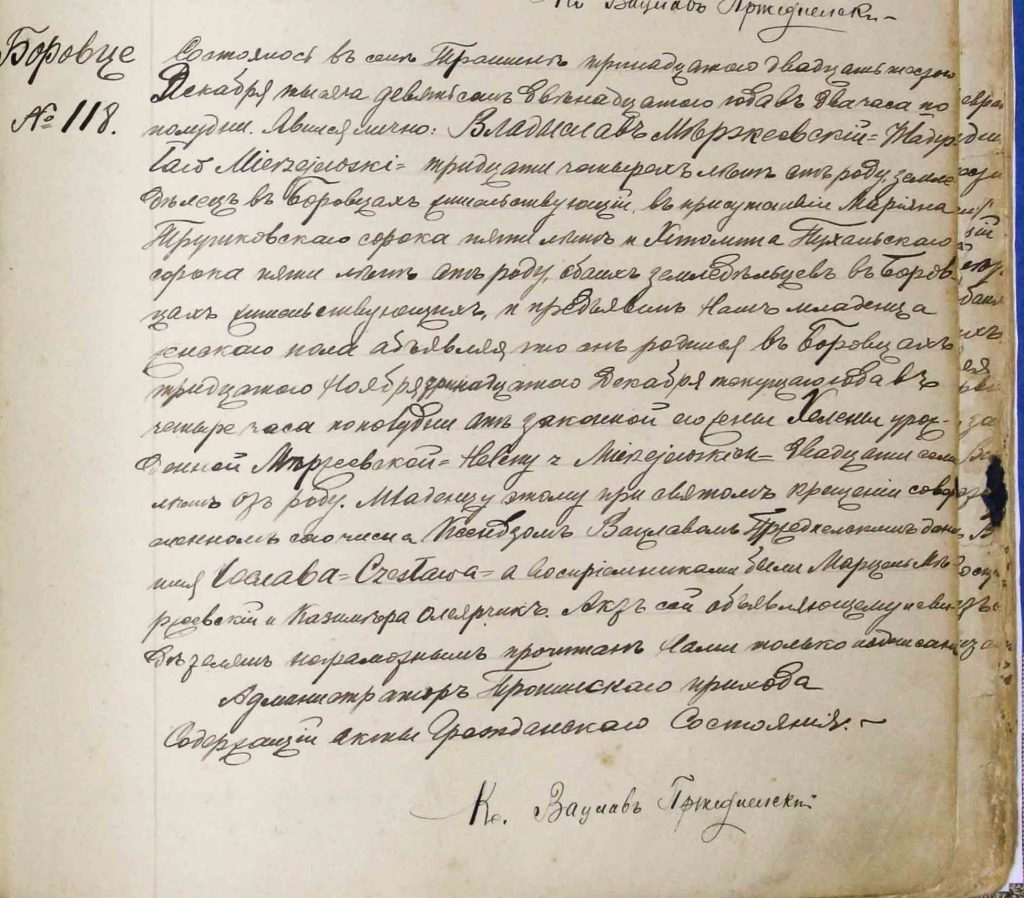 Кс. Вацлавъ Пржедпелски
Боровце
№ 118.
Состоялось въ селѣ тринадцатого двадцать шестого
Декабря тысяча девятьсотъ двѣнадцатого года въ два часа по
полудни. Явился лично: Владиславъ Мѣржеевскій =
Mierzejewski = тридцати четырехъ лѣтъ отъ роду земле
дѣлецъ въ Боровцахъ жительствующій, въ присутствіи Маріяна
Трушковскаго сорока пяти лѣтъ и Хіполита Пухальскаго
сорока пяти лѣтъ отъ роду, обоихъ земледѣльцевъ въ Боров
цахъ жительствующихъ, и предъявилъ Намъ младенца
женскаго пола объявляя что онъ родился въ Боровцахъ
тридцатого Ноября тринадцатого Декабря текущаго года въ
четыре часа пополудни отъ законной его жены Хелены урож-
денной Мѣржеевской = Heleny z Mierzejewskich = двадцати семи
лѣтъ отъ роду. Младенцу этому при святомъ крещеніи совер
шенномъ сего числа Ксендзомъ Вацлавомъ Пржедпелскимъ дано
имя = Czesława = а воспріемниками были Марцелъ Мѣ-
ржеевскій и Казимѣра Олеярчикъ. Актъ сей объявляющему и сви
дѣтелямъ неграмотнымъ прочитанъ Нами только подписанъ
Администраторъ прихода
Содержащій акты Гражданскаго Состоянія. ~
Кс. Вацлавъ Пржедпелскій